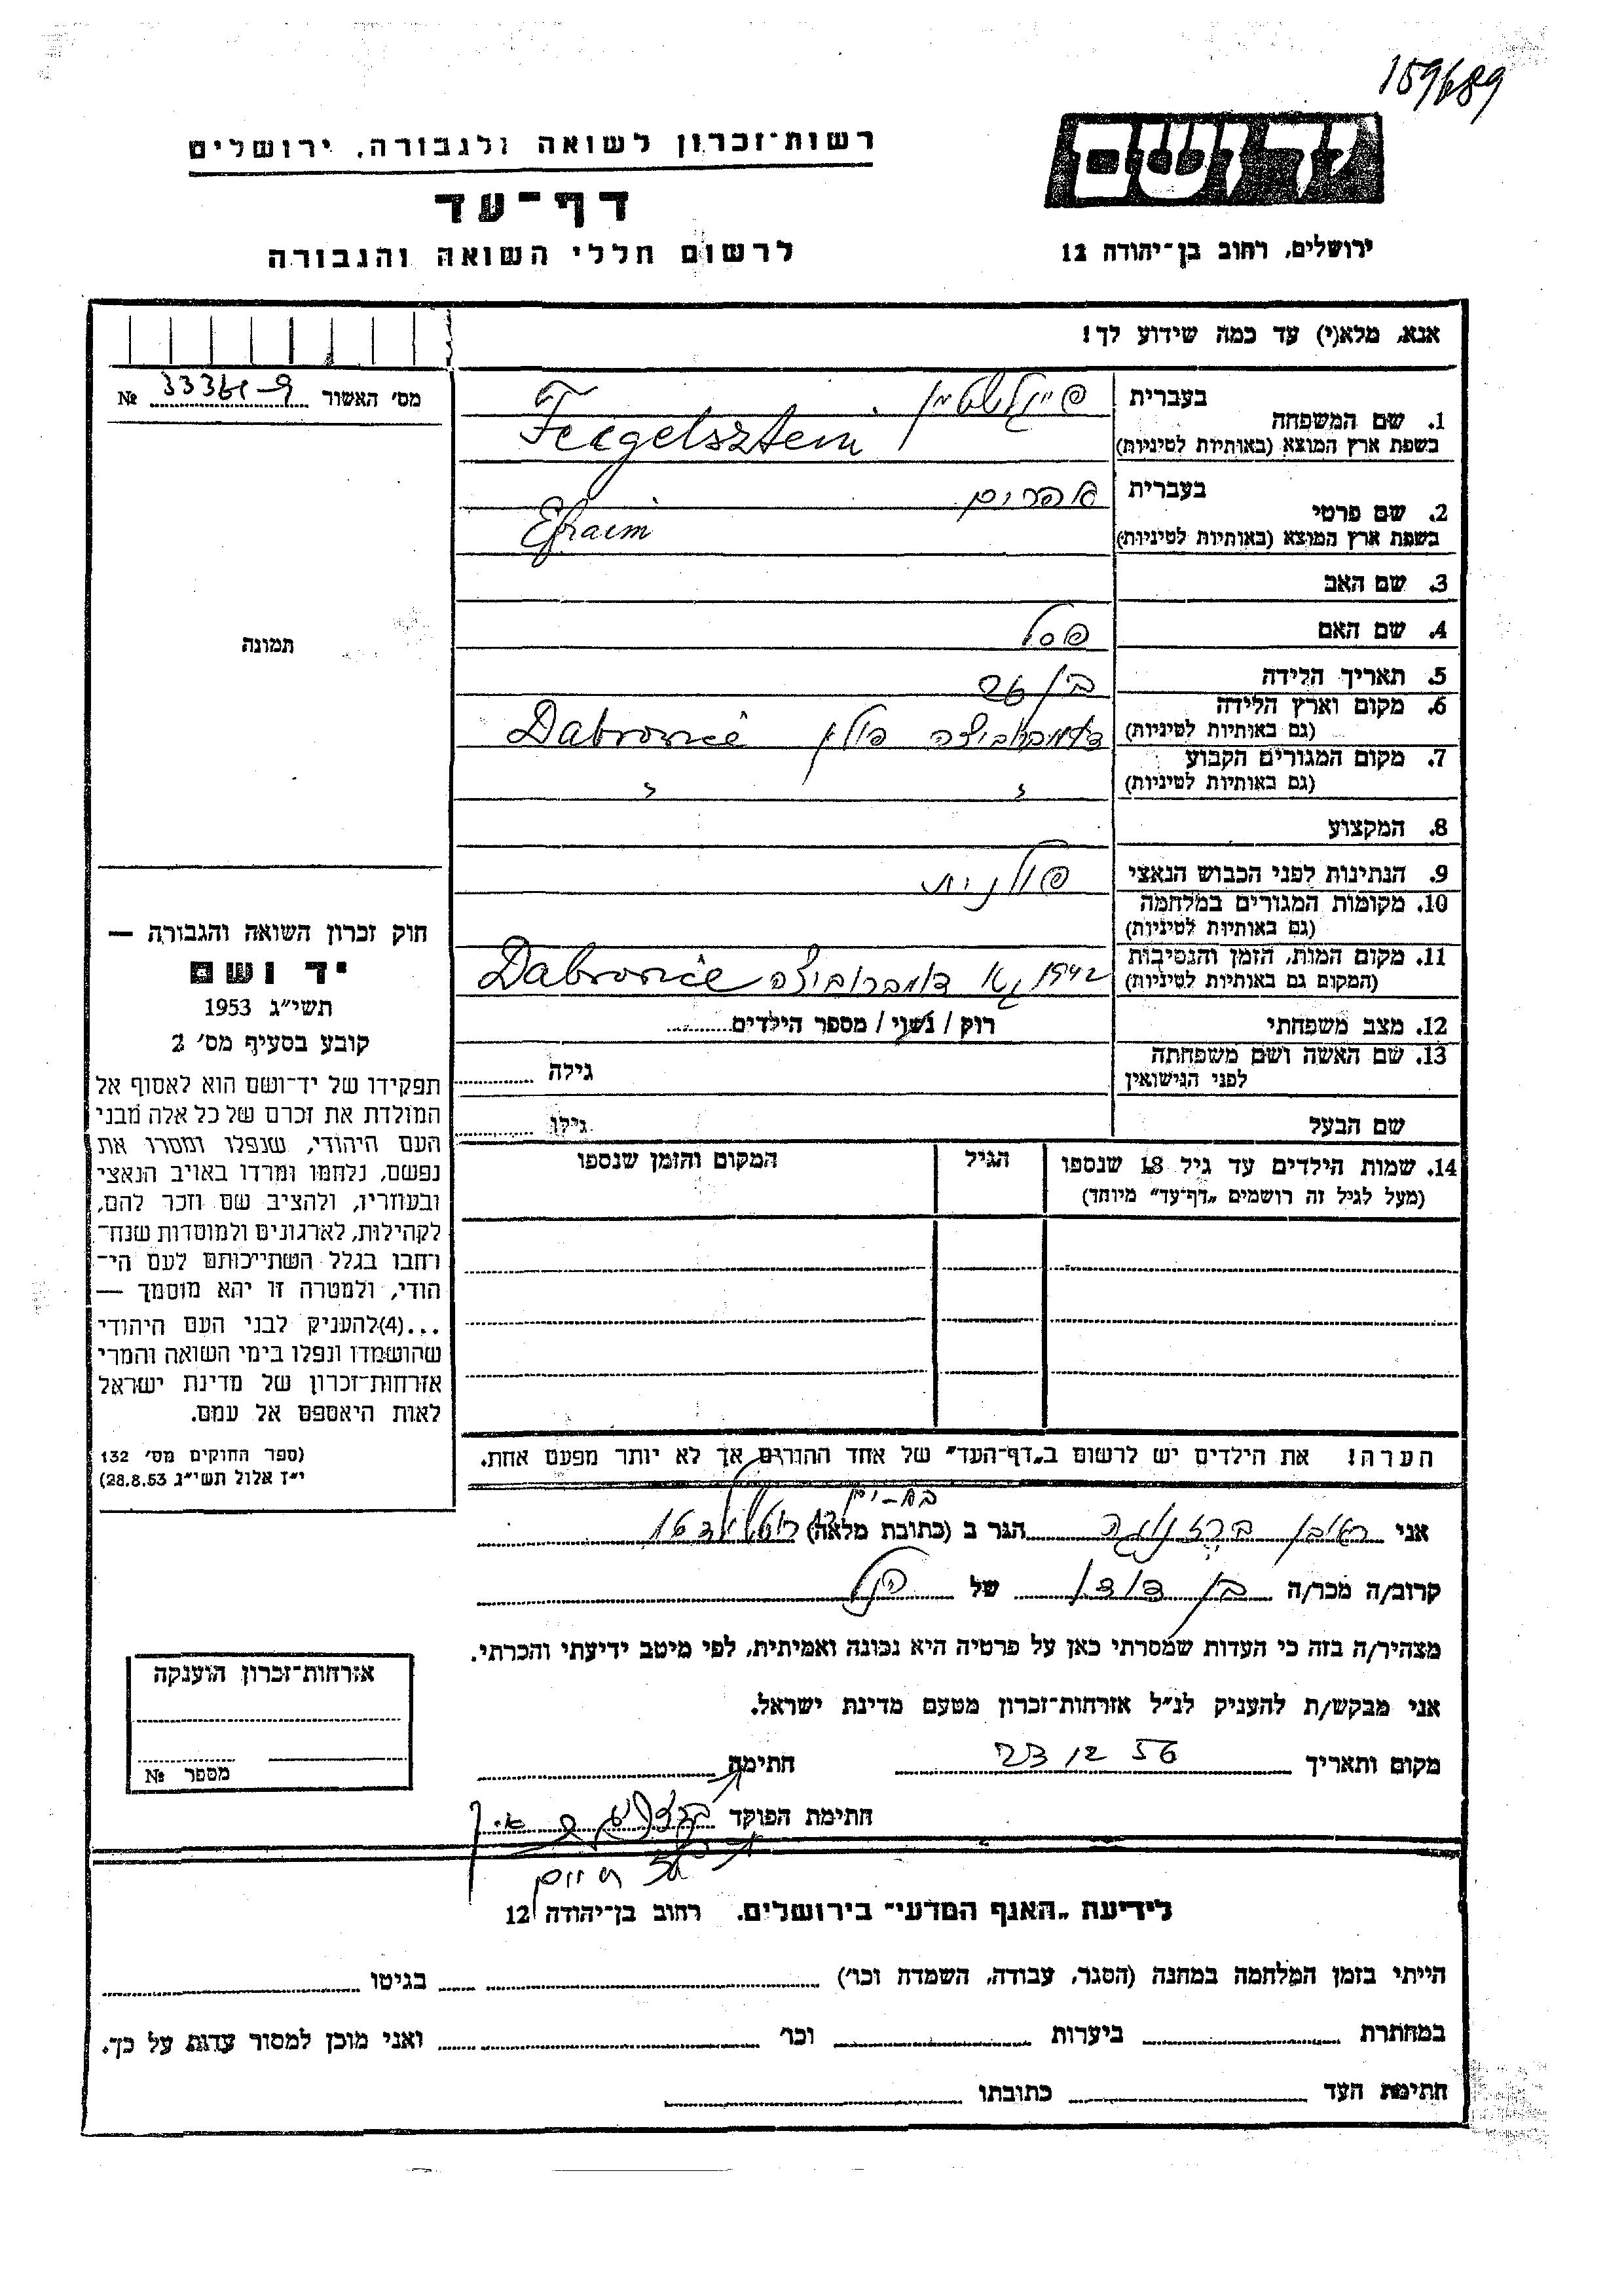 159689
רשות־זכרון לשואה ולגבורה, ירושלים
יד ושם
דף־עד
לרשום חללי השואה והגבורה
ירושלים, רחוב בן־יהודה 12
אנא, מלא(י) עד כמה שידוע לך!
מס' האשור № 33361-9
תמונה
1. שם המשפחה בעברית פייגלשטיין
בשפת ארץ המוצא (באותיות לטיניות) Feigelsztein
2. שם פרטי בעברית אפרים
בשפת ארץ המוצא (באותיות לטיניות) Efraim
3. שם האב
4. שם האם פסל
5. תאריך הלידה בן 26
6. מקום וארץ הלידה
(גם באותיות לטיניות) דומברוביצה פולין Dabrowice
7. מקום המגורים הקבוע
(גם באותיות לטיניות) " "
8. המקצוע
9. הנתינות לפני הכבוש הנאצי פולנית
10. מקומות המגורים במלחמה
(גם באותיות לטיניות)
11. מקום המות, הזמן והנסיבות
(המקום גם באותיות לטיניות) 1942 דומברוביצה Dabrowice
12. מצב משפחתי רוק / נשוי / מספר הילדים
13. שם האשה ושם משפחתה
לפני הנישואין גילה
שם הבעל גילו
14. שמות הילדים עד גיל 18 שנספו הגיל המקום והזמן שנספו
(מעל לגיל זה רושמים "דף־עד" מיוחד)
הערה! את הילדים יש לרשום ב"דף־העד" של אחד ההורים אך לא יותר מפעם אחת.
חוק זכרון השואה והגבורה —
יד ושם
תשי"ג 1953
קובע בסעיף מס' 2
תפקידו של יד־ושם הוא לאסוף אל
המולדת את זכרם של כל אלה מבני
העם היהודי, שנפלו ומסרו את
נפשם, נלחמו ומרדו באויב הנאצי
ובעוזריו, ולהציב שם וזכר להם,
לקהילות, לארגונים ולמוסדות שנח־
רחבו בגלל השתייכותם לעם הי־
הודי, ולמטרה זו יהא מוסמך —
...(4)להעניק לבני העם היהודי
שהושמדו ונפלו בימי השואה והמרי
אזרחות־זכרון של מדינת ישראל
לאות היאספם אל עמם.
(ספר החוקים מס' 132
י"ז אלול תשי"ג 28.8.53)
בת-ים
אני ראובן הגר ב (כתובת מלאה)
קרוב/ה מכר/ה בן דודו של הנ"ל
מצהיר/ה בזה כי העדות שמסרתי כאן על פרטיה היא נכונה ואמיתית, לפי מיטב ידיעתי והכרתי.
אני מבקש/ת להעניק לנ"ל אזרחות־זכרון מטעם מדינת ישראל.
מקום ותאריך 23 12 56 חתימה
חתימת הפוקד
אזרחות־זכרון הוענקה
מספר №
לידיעת "האגף המדעי" בירושלים. רחוב בן־יהודה 12
הייתי בזמן המלחמה במחנה (הסגר, עבודה, השמדה וכו') בגיטו
במחתרת ביערות וכו' ואני מוכן למסור עדות על כך.
חתימת העד כתובתו